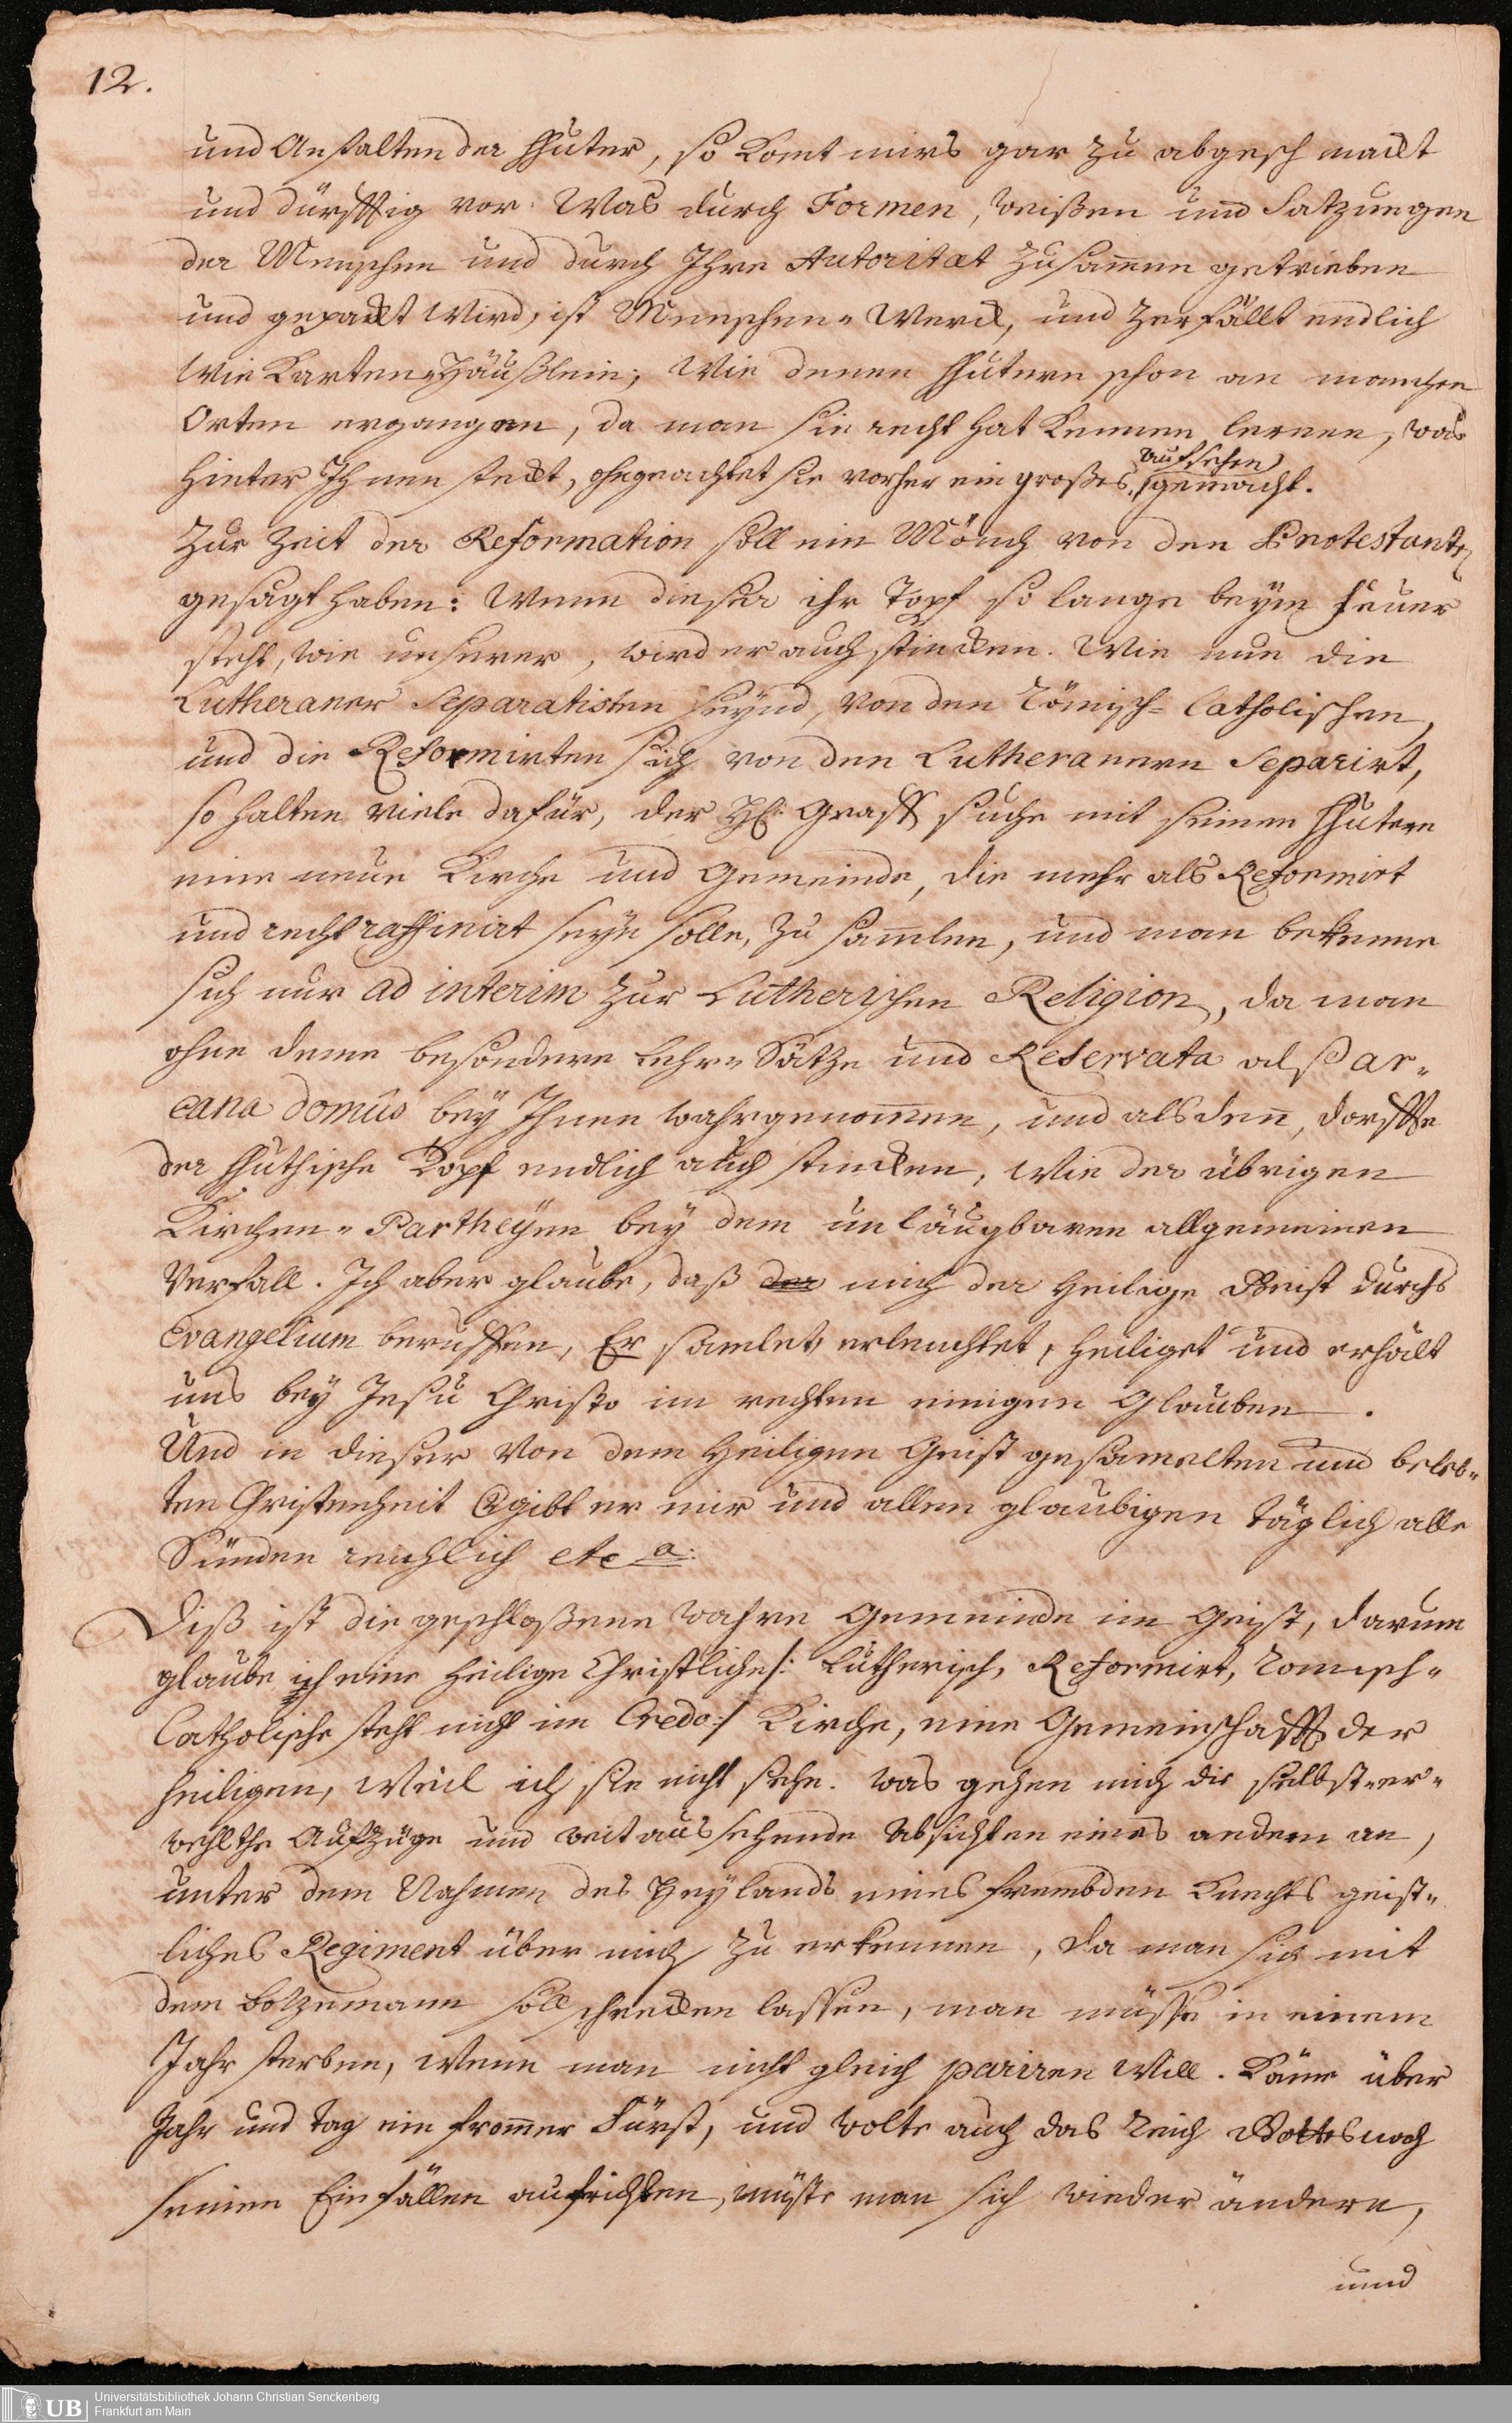 12.
und Anstalten der Hhuter, so komt mirs gar zu abgeschmackt
und dürfftig vor. Was durch Formen, weißen und Satzungen
der Menschen und durch Ihre Autoritæt zusam̄en getrieben
und gepackt wird, ist Menschen-Werck, und zerfällt endlich
wie Karten-Häußlein; wie denen Hhutern schon an manchen
Orten ergangen, da man sie recht hat kennen lernen, was
hinter Ihnen steckt, ohngeachtet sie vorher ein großes aufsehen gemacht.
Zur Zeit der Reformation soll ein Mönch von den Protestanten
gesagt haben: Wenn dieser ihr Topf so lange beym Feuer
steht, wie unserer, wird er auch stincken. Wie nun die
Lutheraner Separatisten seynd, von den Römisch-Catholischen,
und die Reformirten sich von den Lutheranern Separirt,
so halten viele dafür, der H. Graff suche mit seinen Hhutern
eine neue Kirche und Gemeinde, die mehr als Reformirt
und recht raffinirt seyn solle, zu sam̄len, und man bekenne
sich nur ad interim zur Lutherischen Religion, da man
ohne deme besondere Lehr-Sätze und Reservata als ar-
cana domus bey Ihnen wahrgenom̄en, und alsdenn, dorffte
der Hhuthische Topf endlich auch stincken, wie der übrigen
Kirchen-Partheyen bey dem unläugbaren allgemeinen
Verfall. Ich aber glaube, daß der mich der Heilige Geist durchs
Evangelium beruffen, Er samlet, erleuchtet, heiliget und erhält
uns bey Jesu Christo im rechten einigen Glauben.
Und in dieser von dem Heiligen Geist gesamelten und beleb-
ten Christenheit vergibt er mir und allen glaubigen täglich alle
Sünden reichlich etc a:
Diß ist die geschloßene wahre Gemeinde im Geist, darum
glaube ich eine Heilige Christliche /: Lutherisch, Reformirt, Romisch-
Catholische steht nicht im Credo :/ Kirche, eine Gemeinschafft der
Heiligen, weil ich sie nicht sehe. was gehen mich die selbst-er-
wehlthe Aufzüge und weitaussehende Absichten eines andern an,
unter dem Nahmen des Heylands eines frembden Knechts geist-
liches Regiment über mich zu erkennen, da man sich mit
dem Botzemann soll schrecken lassen, man müsse in einem
Jahr sterben, wenn man nicht gleich pariren will. Käme über
Jahr und Tag ein from̄er Fürst, und wolte auch das Reich Gottes nach
seinen Einfällen aufrichten, müste man sich wieder ändern,
und
UB Universitätsbibliothek Johann Christian Senckenberg
Frankfurt am Main